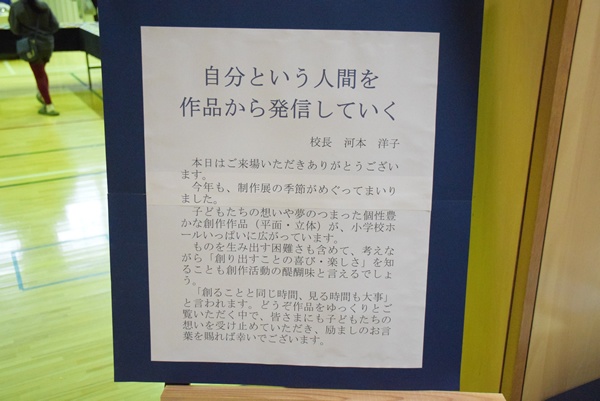 自分という人間を
作品から発信していく
校長　河本　洋子
　本日はご来場いただきありがとうござい
ます。
　今年も、制作展の季節がめぐってまいり
ました。
　子どもたちの想いや夢のつまった個性豊
かな創作作品（平面・立体）が、小学校ホ
ールいっぱいに広がっています。
　ものを生み出す困難さも含めて、考えな
がら「創り出すことの喜び・楽しさ」を知
ることも創作活動の醍醐味と言えるでしょ
う。
　「創ることと同じ時間、見る時間も大事」
と言われます。どうぞ作品をゆっくりとご
覧いただく中で、皆さまにも子どもたちの
想いを受け止めていただき、励ましのお言
葉を賜れば幸いでございます。